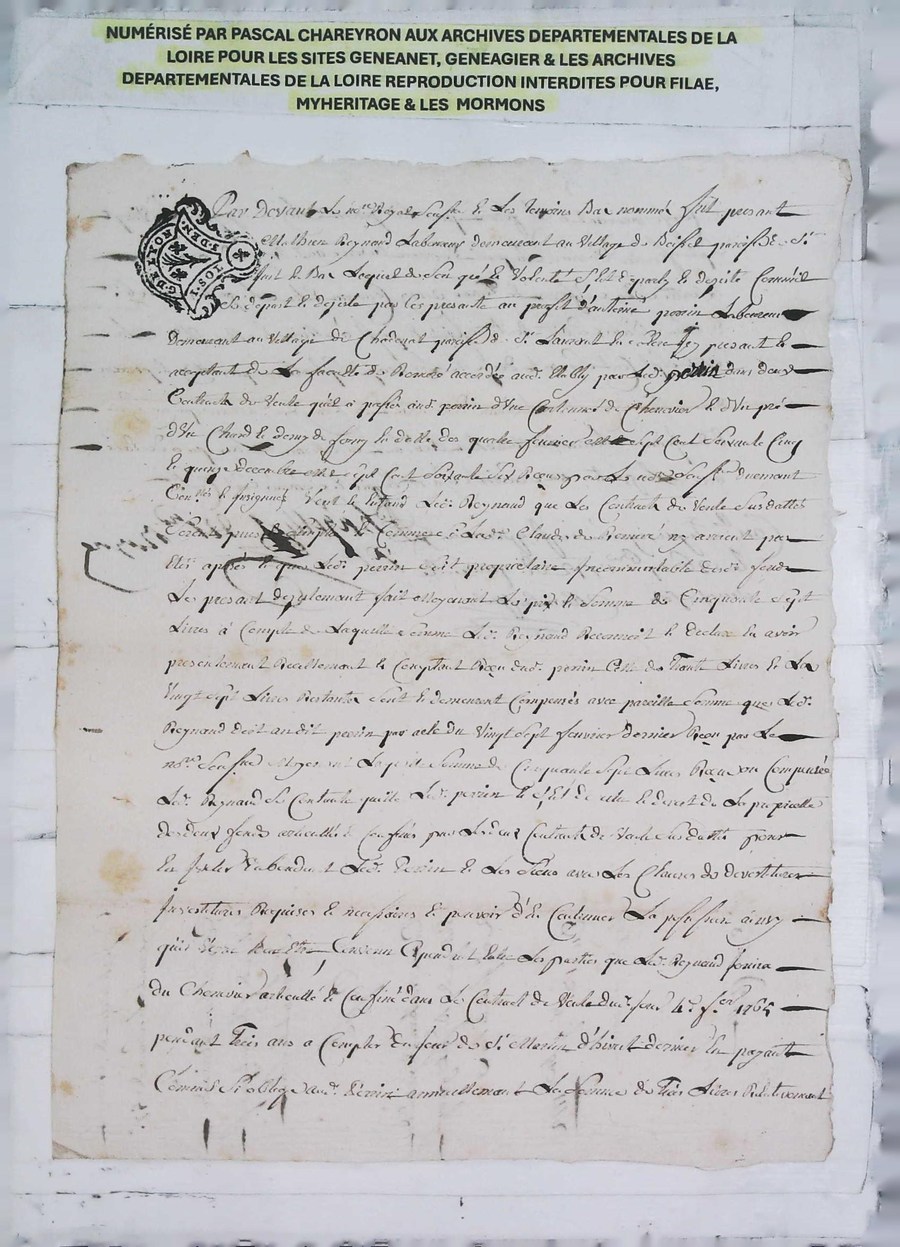 NUMÉRISÉ PAR PASCAL CHAREYRON AUX ARCHIVES DEPARTEMENTALES DE LA
LOIRE POUR LES SITES GENEANET, GENEAGIER & LES ARCHIVES
DEPARTEMENTALES DE LA LOIRE REPRODUCTION INTERDITES POUR FILAE,
MYHERITAGE & LES MORMONS
Par Devant Le no.re Royal Soussné & Les Temoins Bas nommés fut present
Mathieu Reynaud Laboureur demeurant au Village de paroisse de St.
just le Bas Lequel de Son gré & Volonté S'est departy & desiste Comme il
Se depart & desiste par Ces presante au profit d'antoine perrin Laboureur
demeurant au Village de paroisse de St. Laurent present &
acceptant de La faculté de Remeré accordée aud. Etably par Led. perrin dans deux
Contracts de Vente qu'il a passé aud. perrin d'Une de Chenevier & d'Un pré
d'Un Char & demy de foing en datte des quatre fevrier Sept Cent Soixante Cinq
& quinze Decembre Sept Cent Soixante Six Reçus par Le no.re Soussné duement
Con.lés & Insignués Veut & Entend Led. Reynaud que Les Contracts de Vente Susdattés
Soient Comme Si La d. Clause de Remeré n'y avoient pas
Eté après & que Led. perrin Soit proprietaire Incommutable desd. fonds
Le presant departement fait Moyenant Le prix & Somme de Cinquante Sept
Livres à Compte de Laquelle Somme Led. Reynaud Reconnoit & Declare En avoir
presentement Reellement & Comptant Reçu dud. perrin Celle de Trente Livres & Les
Vingt Sept Livres Restantes Sont & demeurent Compensés avec pareille Somme que Led.
Reynaud doit audit perrin par acte du Vingt Sept fevrier dernier Reçu par Le
no.re Soussné Moyenant Laquelle Somme de Cinquante Sept Livres Reçue ou Compensée
Led. Reynaud Se Contente quitte Led. perrin & de la propriette
des deux fonds articullés & Confinés par Les deux Contracts de Vente Susdattés pour
En Led. Perrin & Les Siens avec Les Clauses de devestiture
Investiture Requises & necessaires & pouvoir d'En Continuer La possession ainsy
qu'il Convenu Cependant Entre Les parties que Led. Reynaud Jouira
du Chenevier articullé & Confiné dans Le Contract de Vente dud. jour 4e. fer. 1765
pendant Trois ans a Compter du jour de St. Martin d'hivert dernier En payant
Comme Il S'oblige aud. perrin annuellement La Somme de Trois Livres